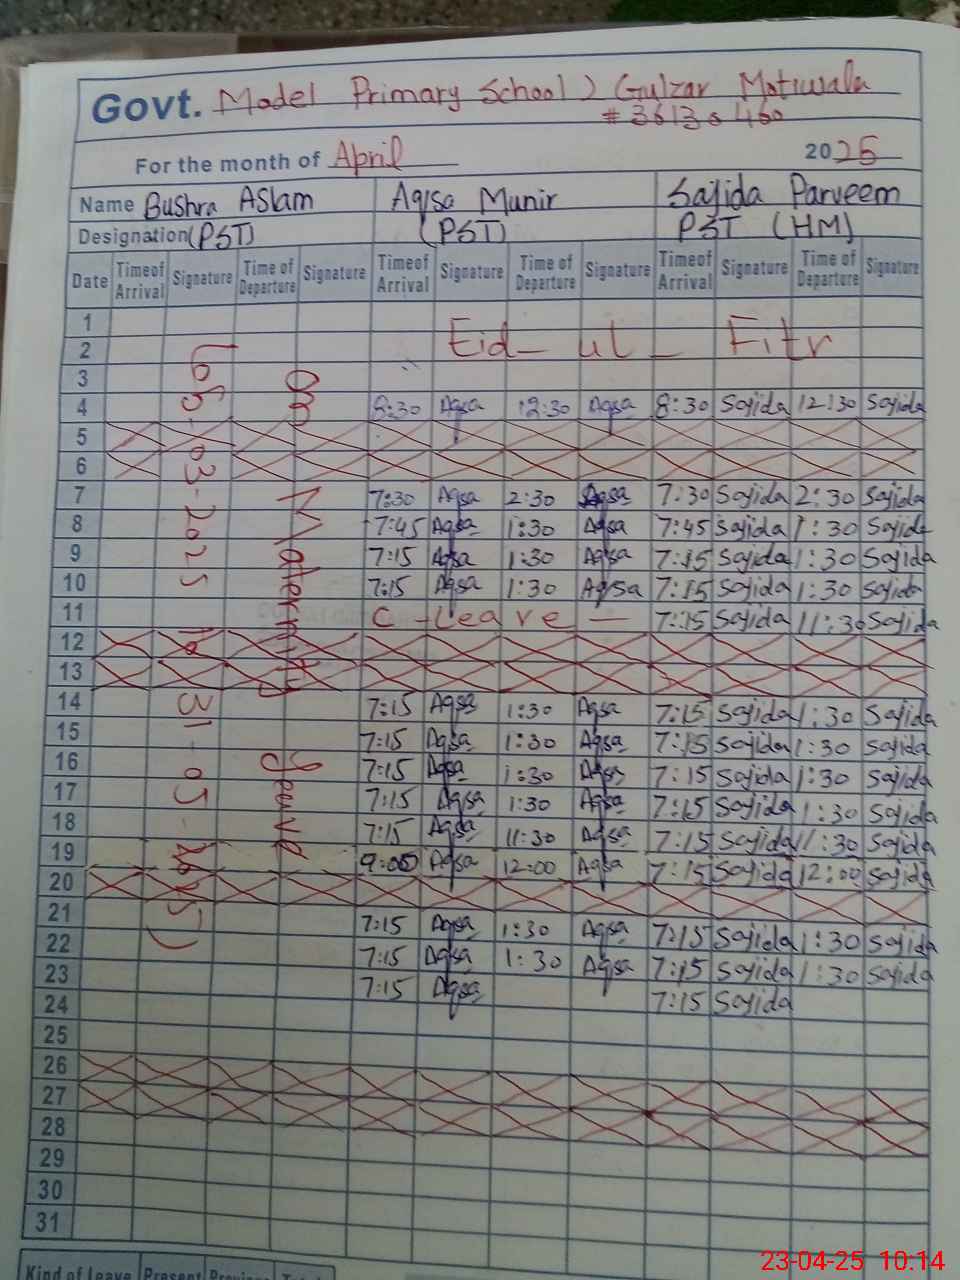 Govt. Model Primary School) Gulzar Motiwala
# 36130460
For the month of April 2025
Name Bushra Aslam Aqsa Munir Sajida Parveem
Designation (PST) (PST) PST (HM)
Date Timeof Arrival Signature Time of Departure Signature Timeof Arrival Signature Time of Departure Signature Timeof Arrival Signature Time of Departure Signature
1
2 Eid-ul-Fitr
3
4 8:30 Aqsa 12:30 Aqsa 8:30 Sajida 12:30 Sajida
5
6
7 7:30 Aqsa 2:30 Aqsa 7:30 Sajida 2:30 Sajida
8 7:45 Aqsa 1:30 Aqsa 7:45 Sajida 1:30 Sajida
9 7:15 Aqsa 1:30 Aqsa 7:15 Sajida 1:30 Sajida
10 7:15 Aqsa 1:30 Aqsa 7:15 Sajida 1:30 Sajida
11 C-Leave - 7:15 Sajida 11:30 Sajida
12
13
14 7:15 Aqsa 1:30 Aqsa 7:15 Sajida 1:30 Sajida
15 7:15 Aqsa 1:30 Aqsa 7:15 Sajida 1:30 Sajida
16 7:15 Aqsa 1:30 Aqsa 7:15 Sajida 1:30 Sajida
17 7:15 Aqsa 1:30 Aqsa 7:15 Sajida 1:30 Sajida
18 7:15 Aqsa 11:30 Aqsa 7:15 Sajida 11:30 Sajida
19 9:00 Aqsa 12:00 Aqsa 7:15 Sajida 12:00 Sajida
20
21 7:15 Aqsa 1:30 Aqsa 7:15 Sajida 1:30 Sajida
22 7:15 Aqsa 1:30 Aqsa 7:15 Sajida 1:30 Sajida
23 7:15 Aqsa 7:15 Sajida
24
25
26
27
28
29
30
31
-03-2025 to 31-05-2025)
On Maternity Leave
Kind of Leave Present
23-04-25 10:14